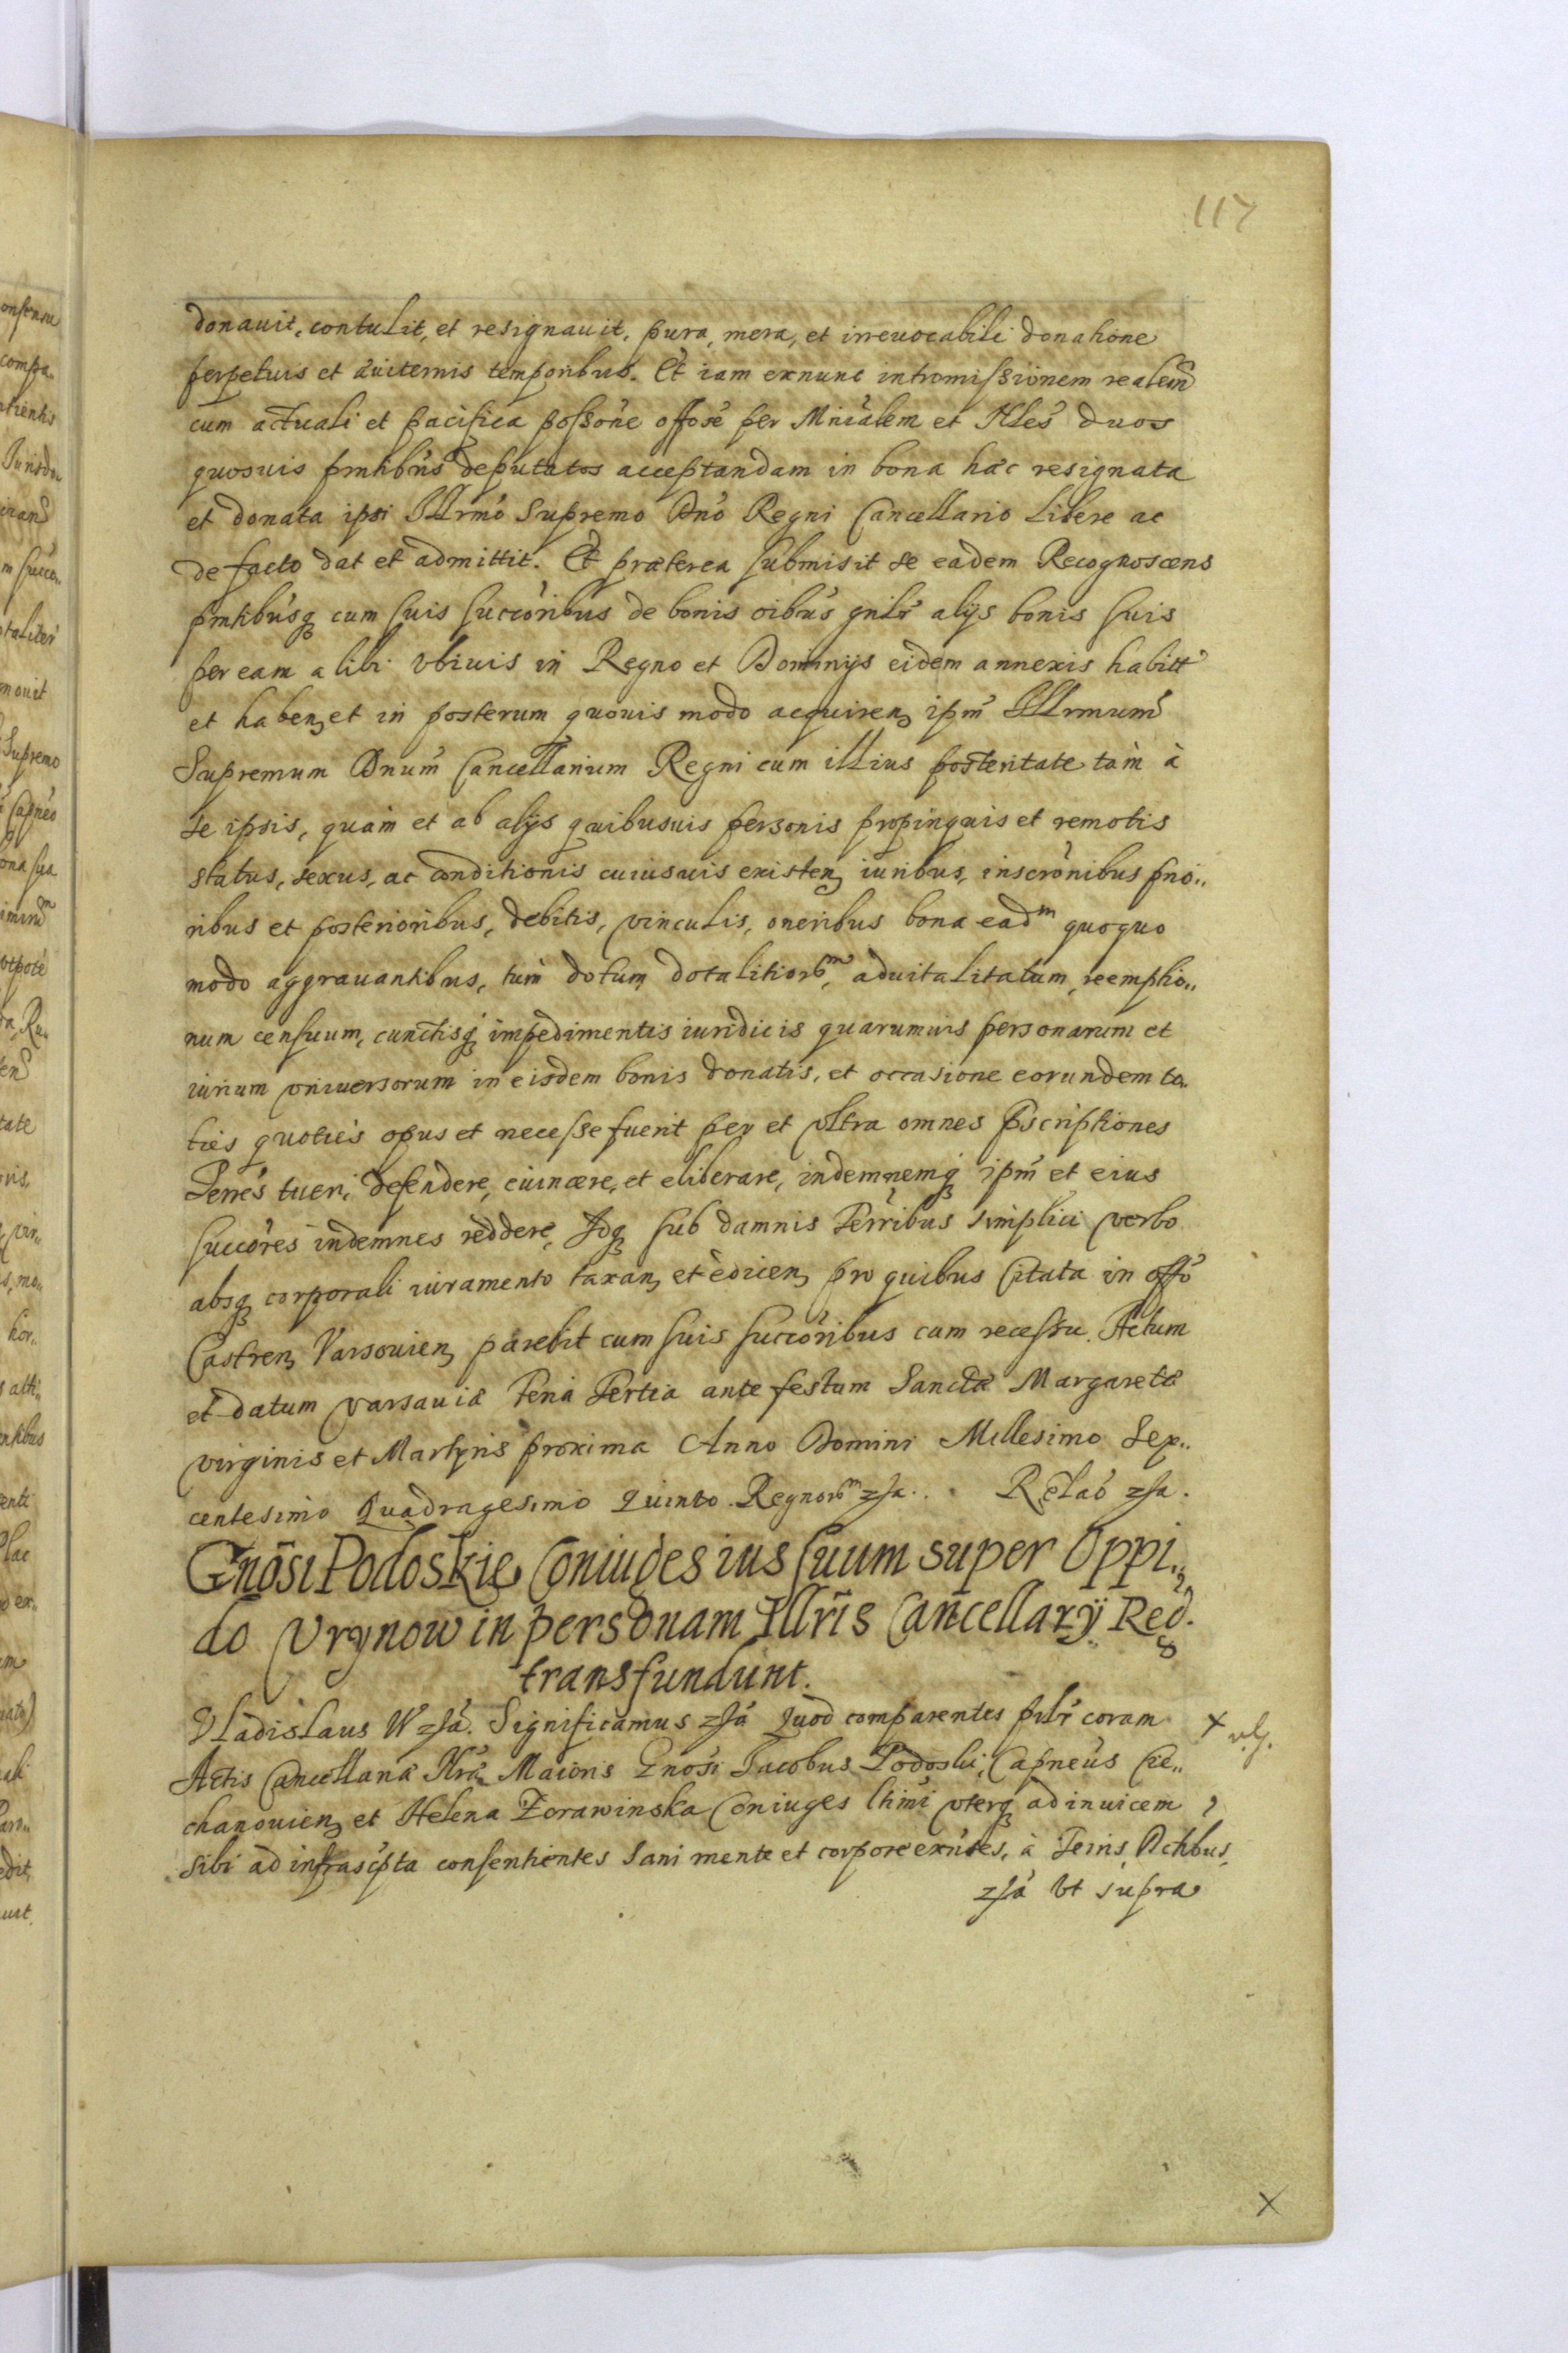 117
donauit, contulit, et resignauit, pura, mera, et irreuocabili donatione
perpetuis et æuiternis temporibus. Et iam exnunc intromissionem realem
cum actuali et pacifica posso͂ne offose per Mnialem et Nles duos
quosuis pntibus deputatos acceptandam in bona hæc resignata
et donata ipsi Illrmo Supremo Dno Regni Cancellario Libere ac
de facto dat et admittit. Et præterea submisit se eadem Recognoscens
pntibusq cum suis succoribus de bonis oibus gnlr alijs bonis suis
per eam alibi vbiuis in Regno et Dominijs eidem annexis habitt
et haben, et in posterum quouis modo acquiren, ipm Illrmum
Supremum Dnum Cancellarium Regni cum illius posteritate tam à
se ipsis, quam et ab alijs quibusuis personis propinquis et remotis
status, sexus, ac conditionis cuiusuis existen, iuribus, inscronibus prio..
ribus et posterioribus, debitis, vinculis, oneribus bona ead^m quoquo
modo aggrauantibus, tum dotum dotalitior^m, aduitalitatum, reemptio..
num censuum, cunctisq impedimentis iuridicis quarumuis personarum et
iurium vniuersorum in eisdem bonis donatis, et occasione eorundem to..
ties quoties opus et necesse fuerit per et vltra omnes Pscriptiones
Terres tueri, defendere, euincere, et eliberare, indemnemq ipm et eius
succores indemnes reddere, Idq sub damnis Terribus simplici verbo
absq corporali iuramento taxan, et edicen, pro quibus Citata in offo
Castren, Varsouien, parebit cum suis succoribus cum recessu. Actum
et datum varsauiæ Feria Tertia ante festum Sanctæ Margaretæ
virginis et Martyris proxima Anno Domini Millesimo Sex..
centesimo Quadragesimo Quinto. Regnor^m zsa.. Relao zsa.
Gnosi Podoskie Coniuges ius suum super Oppi..
do Vrynow in personam Illris Cancellarij Reg.
transfundunt.
Vladislaus IV zsa. Significamus zsa Quod comparentes pslr coram
Actis Cancellariæ Nræ Maioris Gnosi Jacobus Podoski, Capneus Cie..
chanouien, et Helena Zorawinska Coniuges lhimi vterq ad inuicem
sibi ad infrascipta consentientes sani mente et corpore exntes, à Terris, Actibus,
zsa Vt supra